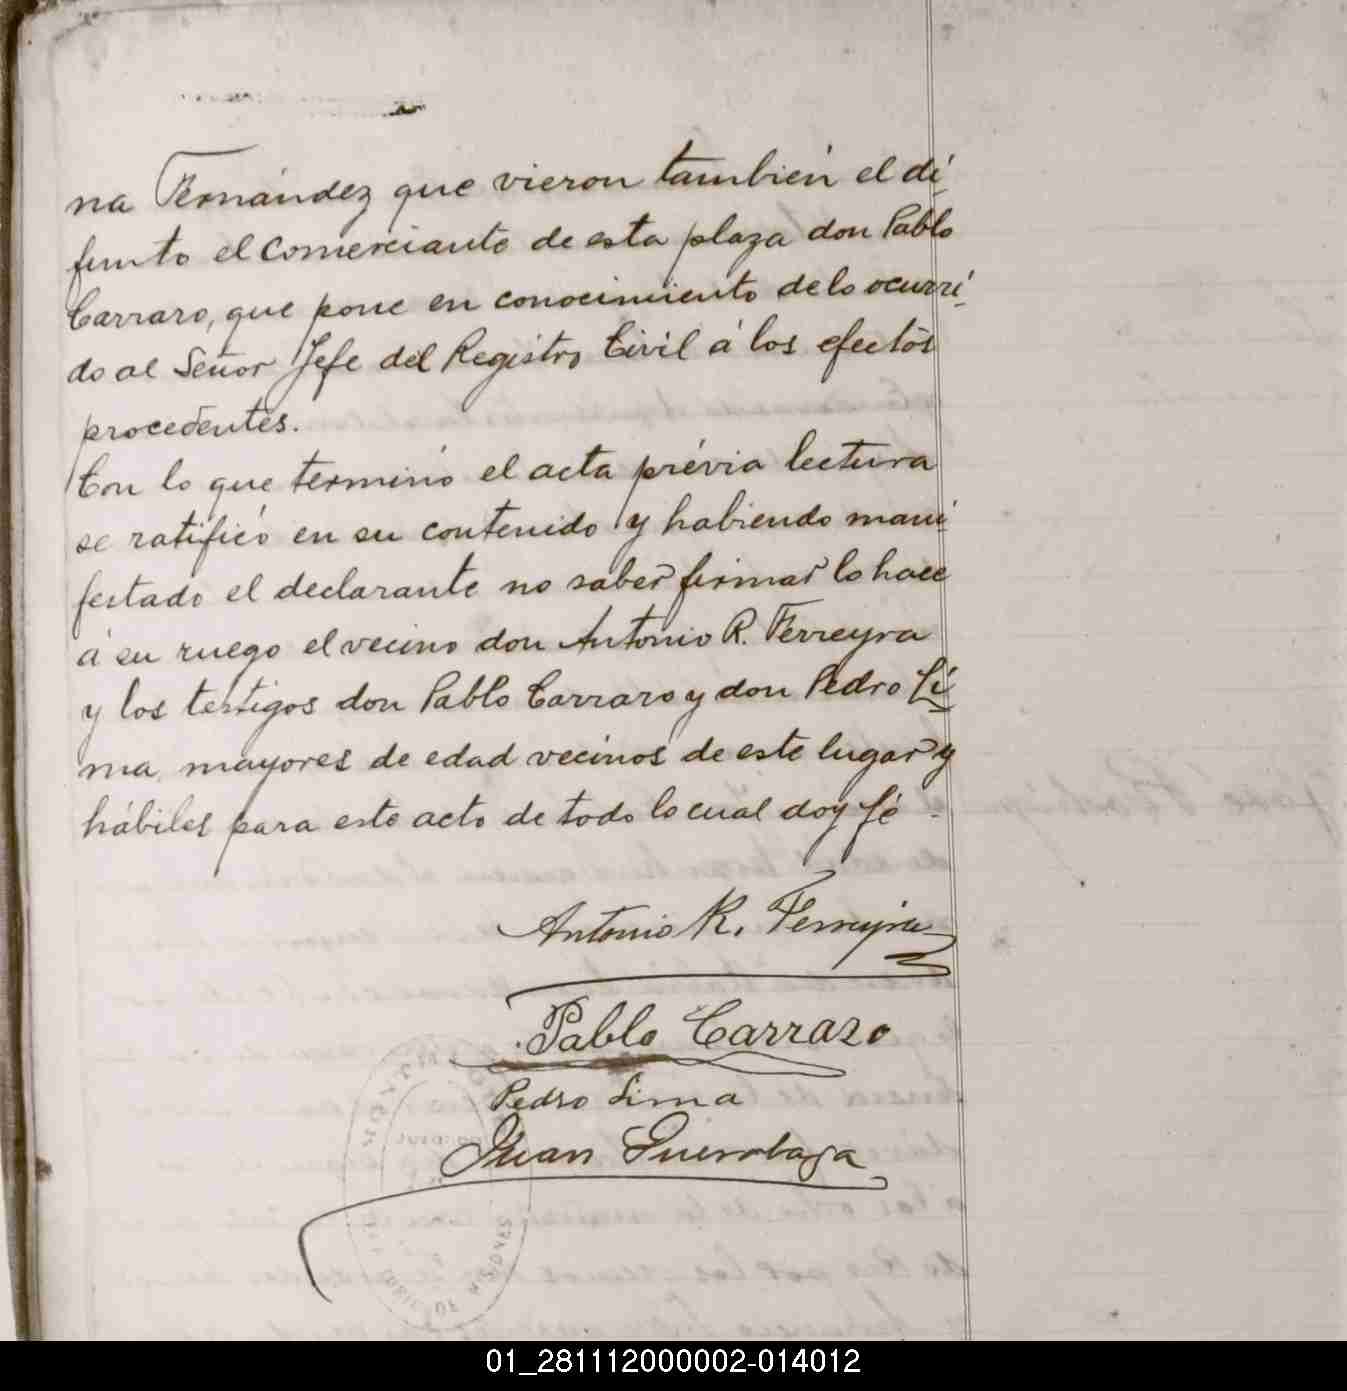 na Fernández que vieron también el di-
funto el comerciante de esta plaza don Pablo
Carraro, que pone en conocimiento de lo ocurri-
do al Señor Jefe del Registro Civil á los efectos
procedentes.
Con lo que terminó el acta prévia lectura
se ratificó en su contenido y habiendo mani
festado el declarante no saber firmar lo hace
á su ruego el vecino don Antonio R. Ferreyra
y los testigos don Pablo Carraro y don Pedro Li
ma mayores de edad vecinos de este lugar y
hábiles para este acto de todo lo cual doy fé -
Antonio R. Ferreyra
Pablo Carraro
Pedro Lima
Juan
MISIONES
01_281112000002-014012